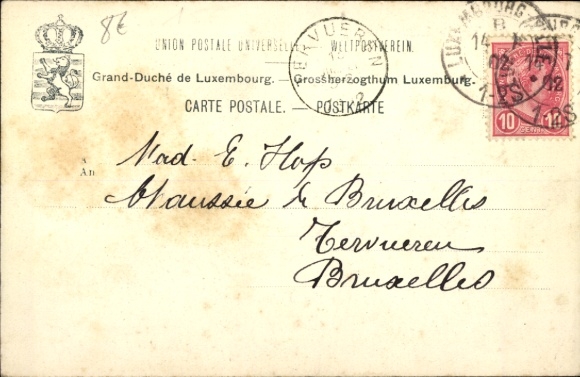 8€
UNION POSTALE UNIVERSELLE. WELTPOSTVEREIN.
Grand-Duché de Luxembourg. – Grossherzogthum Luxemburg.
CARTE POSTALE. – POSTKARTE
TERVUEREN
LUXEMBOURG
10 10
A
An
Mad. E. Hop
Chaussée de Bruxelles
Tervueren
Bruxelles